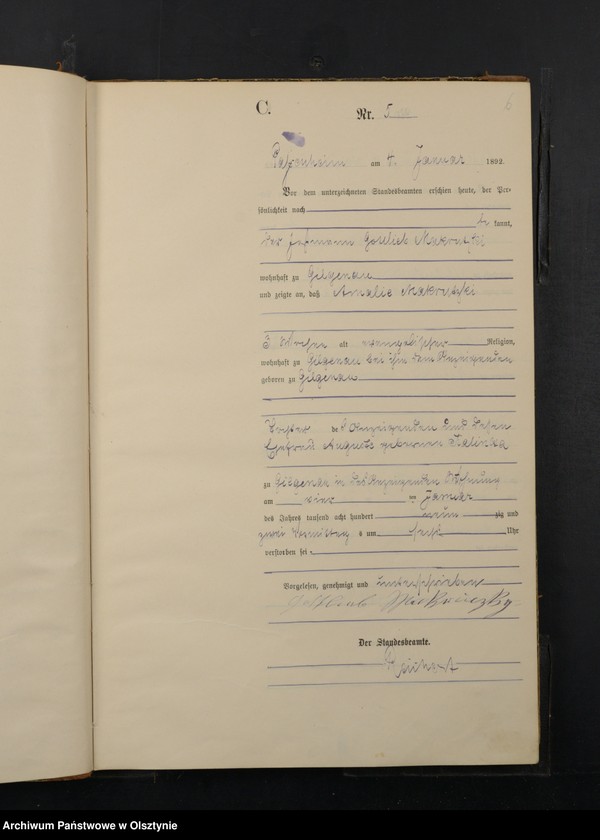 C.
Nr. 5
6
am 4. Januar 1892.
Vor dem unterzeichneten Standesbeamten erschien heute, der Per-
sönlichkeit nach
be kannt,
der Gottlieb
wohnhaft zu Gilgenau
und zeigte an, daß Amalie
3 Wochen alt evangelischer Religion,
wohnhaft zu Gilgenau bei ihm dem Anzeigenden
geboren zu Gilgenau
Tochter des Anzeigenden und dessen
Ehefrau Auguste geborenen Kalinka
zu Gilgenau in des Anzeigenden Wohnung
am vier en Januar
des Jahres tausend acht hundert neun zig und
zwei Vormittag s um sechs Uhr
verstorben sei.
Vorgelesen, genehmigt und unterschrieben
Der Standesbeamte.
Archiwum Państwowe w Olsztynie